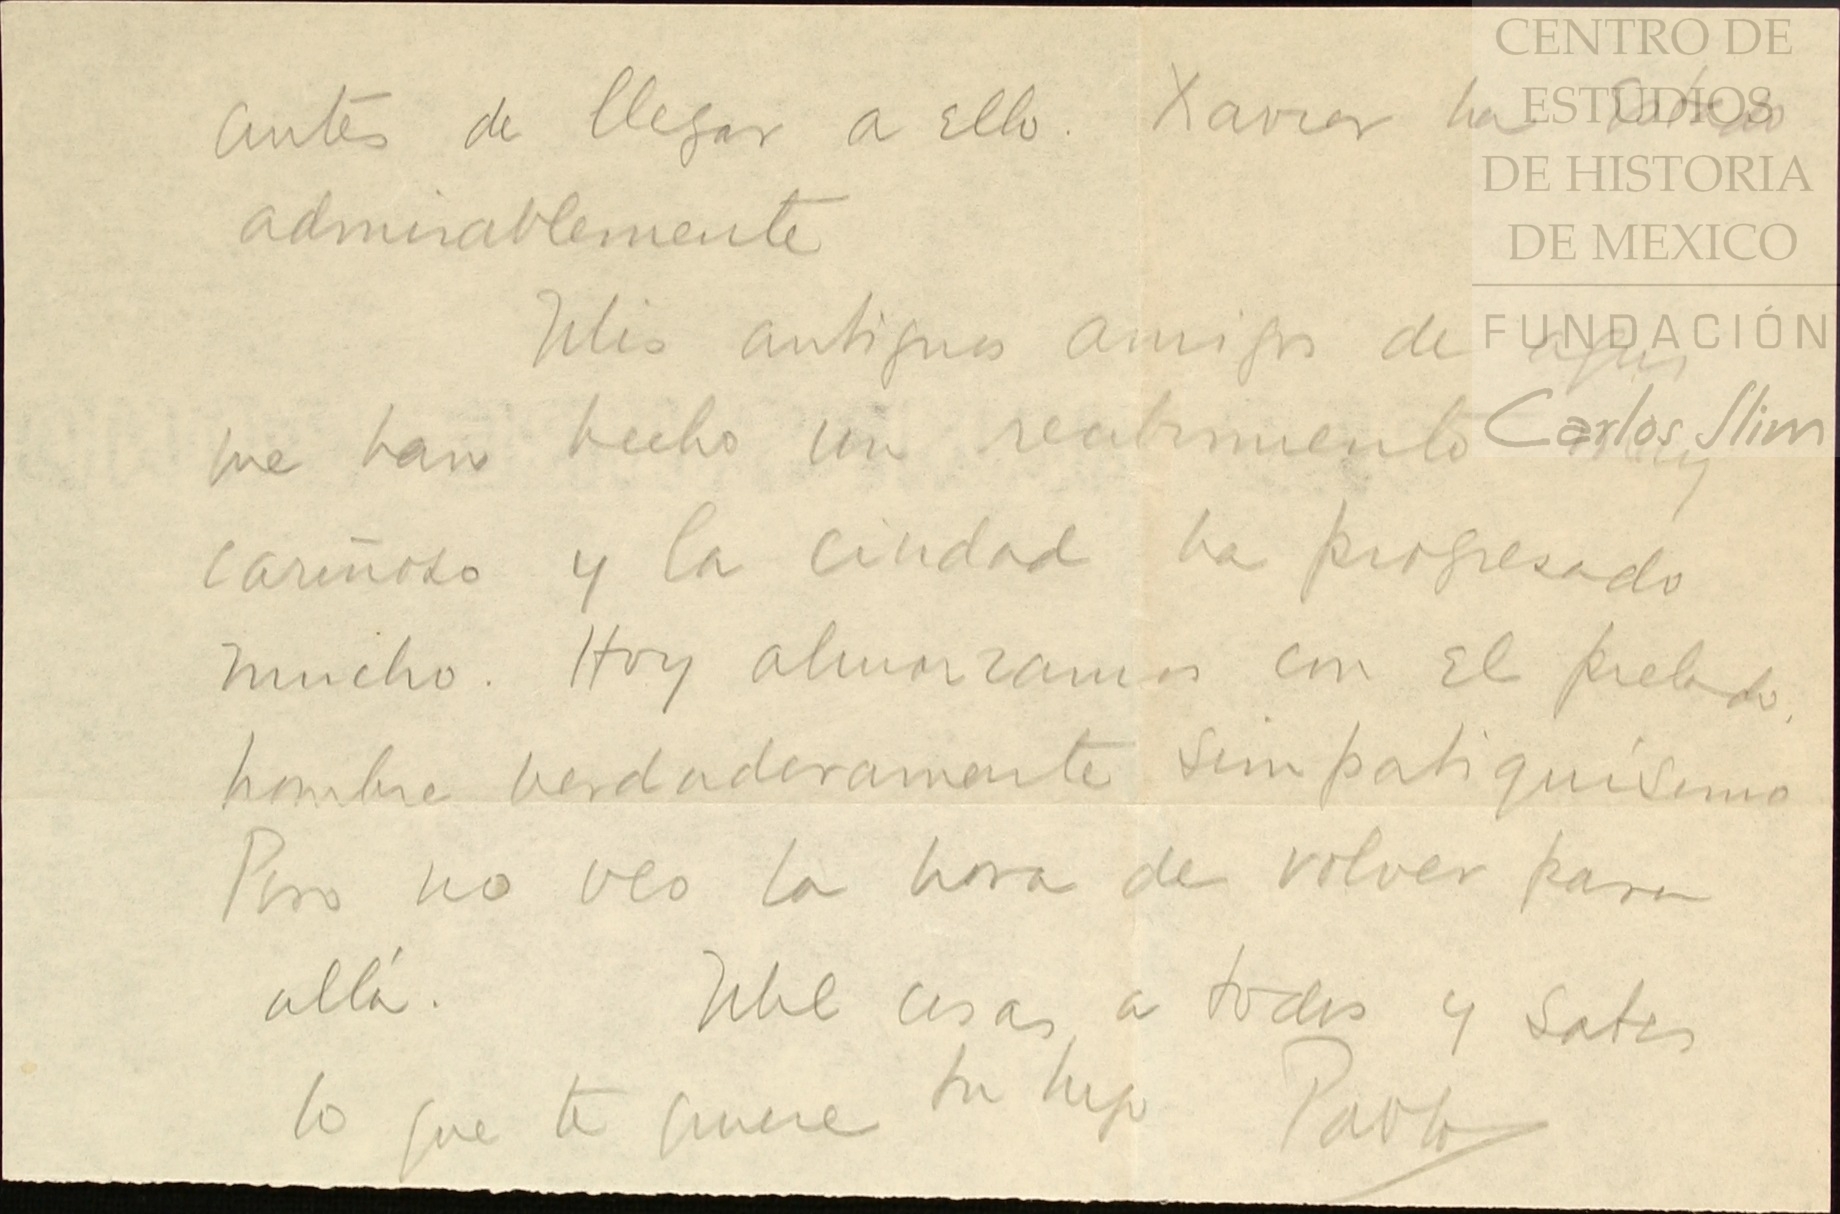 antes de llegar a ello. Xavier ha estado
admirablemente
Mis antiguos amigos de aquí
me han hecho un recibimiento muy
cariñoso y la ciudad ha progresado
mucho. Hoy almorzamos con el prelado,
hombre verdaderamente simpatiquísimo
Pero no veo la hora de volver para
allá. Mil cosas a todos y sabes
lo que te quiere tu hijo Pablo
CENTRO DE
ESTUDIOS
DE HISTORIA
DE MEXICO
FUNDACIÓN
Carlos Slim